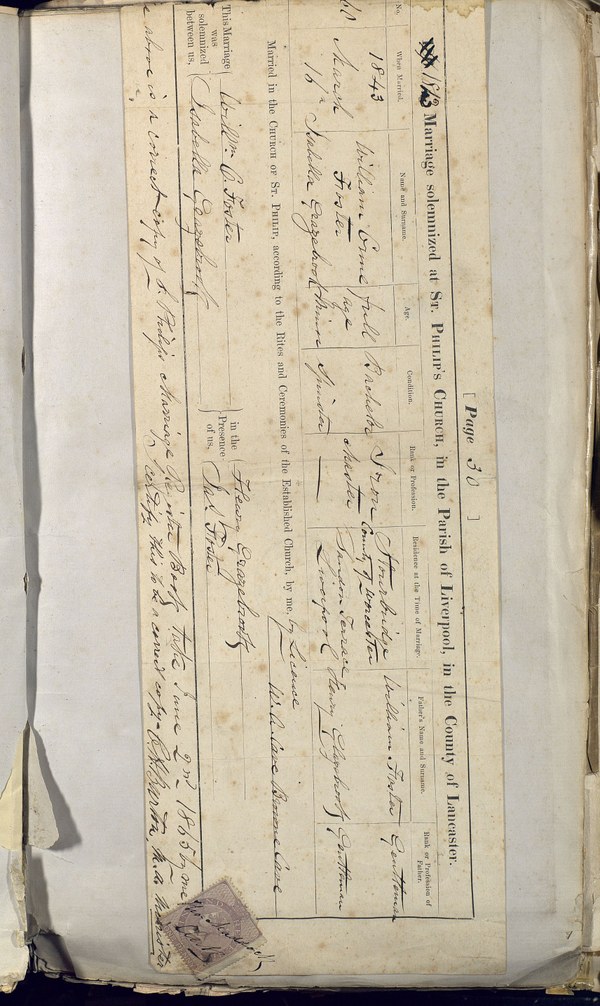 [ Page 30 ]
1843 Marriage solemnized at St. Philip's Church, in the Parish of Liverpool, in the County of Lancaster.
No. When Married. Name and Surname. Age. Condition. Rank or Profession. Residence at the Time of Marriage. Father's Name and Surname. Rank or Profession of Father.
60 1843 March 16 William Orme Foster full age Bachelor Iron Master Stourbridge County of Worcester William Foster Gentleman
Isabella Grazebrook Minor Spinster — Sandon Terrace Liverpool Henry Grazebrook Gentleman
Married in the Church of St. Philip, according to the Rites and Ceremonies of the Established Church, by me, by Licence
This Marriage was solemnized between us, Willm. O. Foster Isabella Grazebrook in the Presence of us, Henry Grazebrook Jas. Foster
above is a correct copy of St. Philips Marriage Register Book June 2nd 1865 by me
certify this to be a correct copy